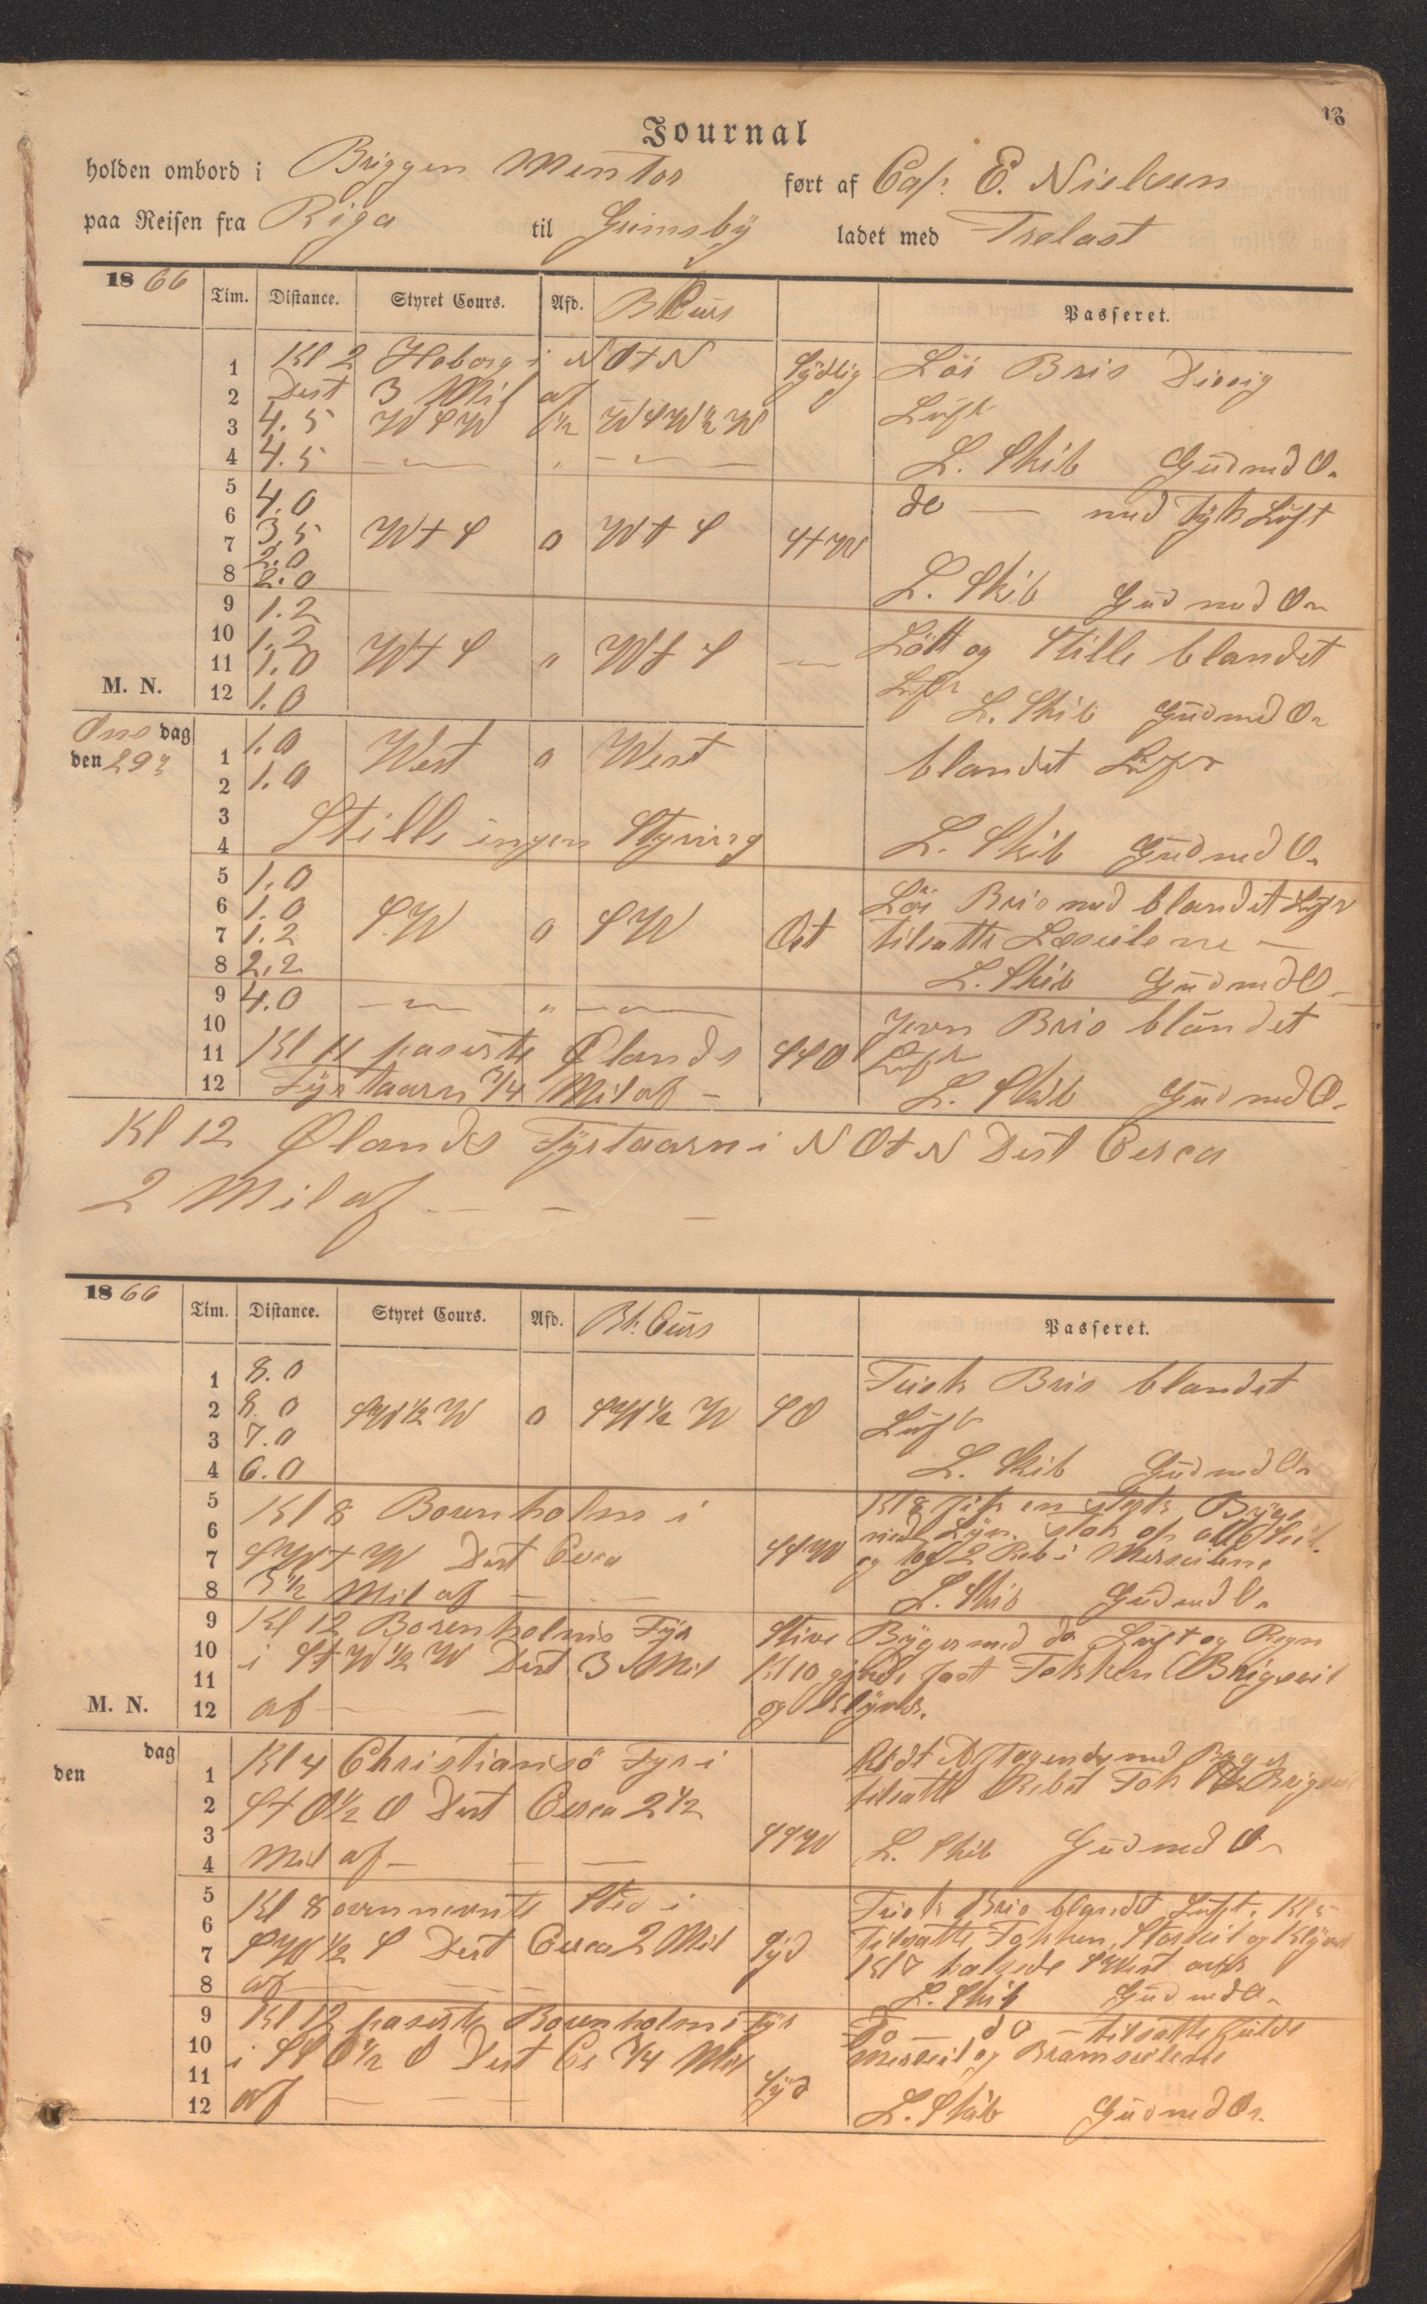 13
Journal
holden ombord i Briggen Mentor ført af Cap: E. Nielsen
paa Reisen fra Riga til Grimsbÿ ladet med Trelast
1866 Tim. Distance. Styret Cours. Afd. B Curs Passeret.
1 Kl 2 Hoborg i NOtN Sÿdlig Löi Bris Diesig
2 Dist 3 Mil af Luft
3 4.5 WSW 1/2 WSW 1/2 W
4 4.5 L. Skib Gud med Os
5 4.0 do — med Tÿk Luft
6 3,5 WtS 0 WtS StW
7 2.0
8 2.0 L. Skib Gud med Os
9 1.2
10 1.2 WtS " WtS — Löit og Stille blandet
11 1.0 Luft
M. N. 12 1.0 L. Skib Gud med Os
Onsdag
den 29
1 1.0 West 0 West blandet Luft
2 1.0
3 Stille ingen Stÿring
4 L. Skib Gud med Os
5 1.0 Löi Bris med blandet Luft
6 1.0 SW 0 SW Ost
7 1.2 tilsatte Læseilene —
8 2.2 L. Skib Gud med Os
9 4.0 — " — Jevn Bris blandet
10 Luft
11 Kl 11 paserte Ølands SSO
12 Fÿrtaarn 3/4 Mil af – L. Skib Gud med Os
Kl 12 Ølands Fÿrtaarn i NOtN Dist Cerca
2 Mil af — — —
1866 Tim. Distance. Styret Cours. Afd. Bh. Curs Passeret.
1 8.0 Frisk Bris blandet
2 8.0 SW 1/2 W 0 SW 1/2 W SO Luft
3 7.0
4 6.0 L. Skib Gud med Os
5 Kl 8 Bornholm i Kl 8 fik en stÿk Bÿge
6 med Lÿn. stak op alle Seil.
7 SWtW Dist Cerca SSW og tog 2 Reb i Merseilene
8 3 1/2 Mil af — — L. Skib Gud med Os
9 Kl 12 Bornholms Fÿr Stive Bÿger med do Luft og Regn
10 i StW 1/2 W Dist 3 Mil Kl 10 gjorde fast Fokken Brigseil
11 og Klÿver.
M. N. 12 af — —
dag
den
1 Kl 4 Christiansö Fÿr i Aftagende med Bÿger
2 StO 1/2 O Dist Cerca 2 1/2 tilsatte Rebet Fok Brigseil
3 SSW
4 Mil af — — — L. Skib Gud med Os
5 Kl 8 ovennevnte Sted i Frisk Bris blandet Luft. Kl 5
6 tilsatte Fokken, Storseil og Klÿver
7 SW 1/2 S Dist Cerca 2 Mil Sÿd Kl 7
8 af — — — L. Skib Gud med Os
9 Kl 12 paserte Bornholms Fÿr do — do — tilsatte
10 i SSO 1/2 O Dist Ca 3/4 Mil Merseil og Bramseilene
11 Sÿd
12 af — — L. Skib Gud med Os.